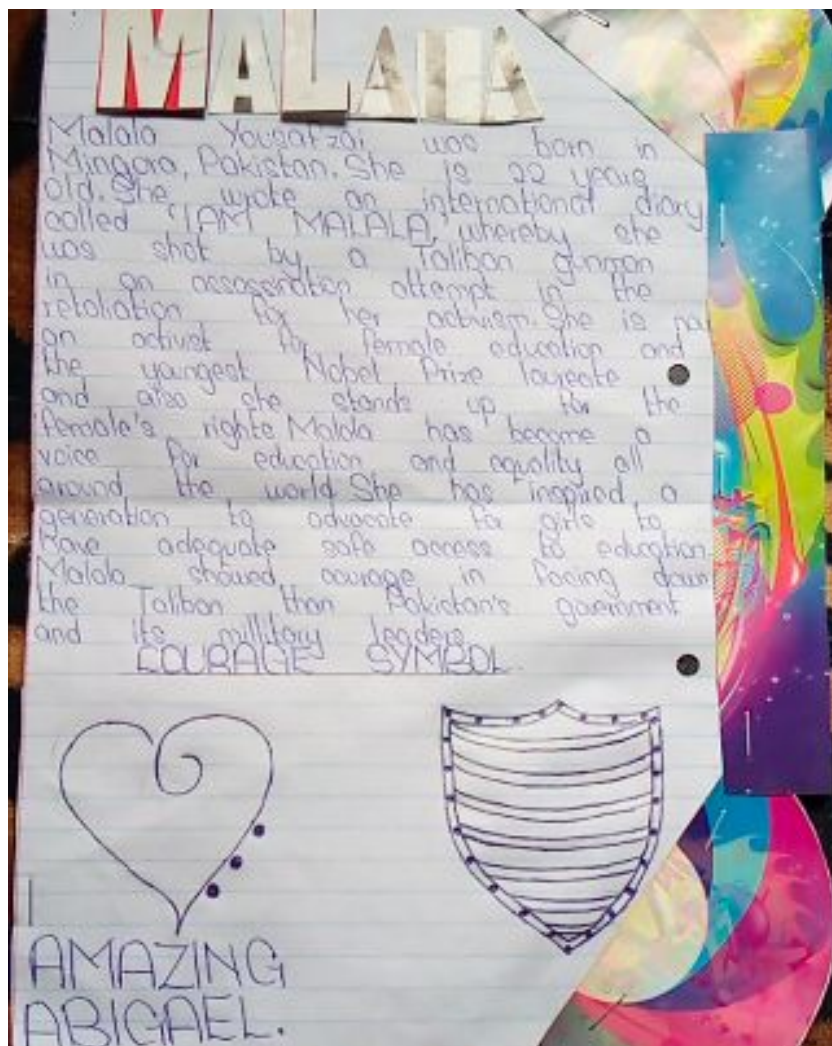 MALALA
Malala Yousafzai was born in
Mingora, Pakistan. She is 22 years
old. She wrote an international diary
called "I AM MALALA," whereby she
was shot by a Taliban gunman
in an assassination attempt in the
retaliation for her activism. She is now
an activist for female education and
the youngest Nobel Prize laureate
and also she stands up for the
female's rights. Malala has become a
voice for education and equality all
around the world. She has inspired a
generation to advocate for girls to
have adequate safe access to education.
Malala showed courage in facing down
the Taliban than Pakistan's government
and its millitary leaders
COURAGE SYMBOL.
AMAZING
ABIGAEL.